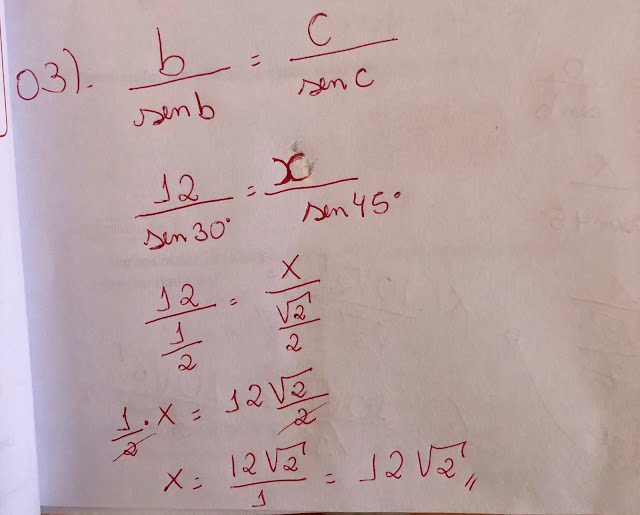 03). b/sen b = c/sen c
12/sen 30° = x/sen 45°
12/(1/2) = x/(√2/2)
1/2 · x = 12√2/2
x = 12√2/1 = 12√2 //